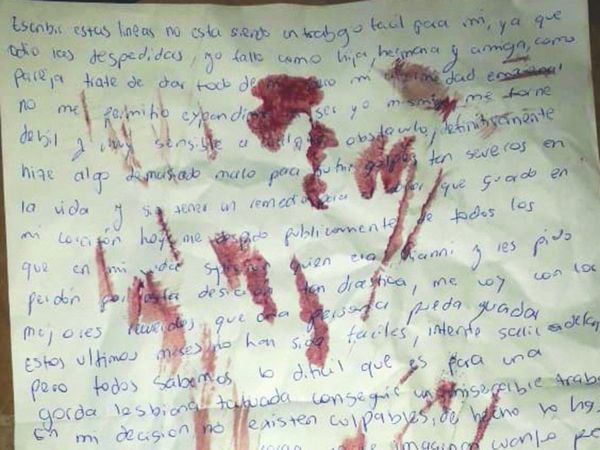 Escribir estas lineas no esta siendo un trabajo facil para mi, ya que
odio las despedidas, yo falle como hija, hermana y amiga, como
pareja trate de dar todo de mi pero mi enfermedad
no me permitio expandirme ser yo misma me torne
debil y muy sensible a obstaculo, definitivamente
hize algo demasiado malo para sufrir golpes tan severos en
la vida y sin tener un remedio para que guardo en
mi corazón hoy me despido publicamente de todos los
que en mi vida quien era y les pido
perdón por esta desicion tan drastica, me voy con los
mejores recuerdos que una persona pueda guardar
Estos ultimos meses no han sido faciles, intente salir
pero todos sabemos lo dificil que es para una
gorda lesbiana tatuada conseguir un miserable
En mi decision no existen culpables, de hecho yo